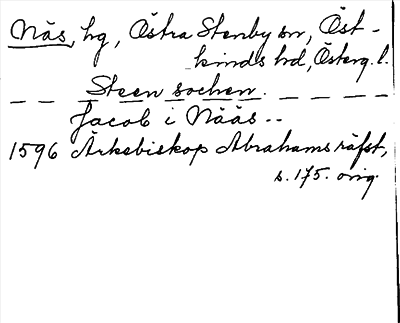 Näs, hg, Östra Stenby sn, Öst-
kinds hd, Österg. l.
_ _ Steen sochen. _ _ _ _
Jacob i Nääs --
1596 Ärkebiskop Abrahams räfst,
s. 175. orig.